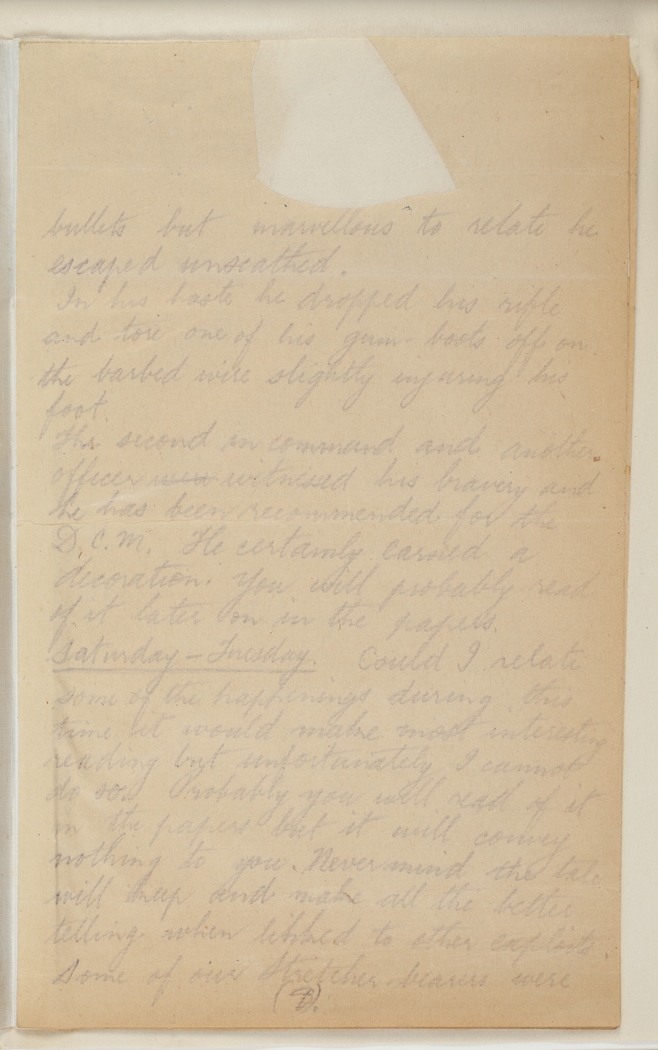 bullets but marvellous to relate he
escaped unscathed.
In his haste he dropped his rifle
and tore one of his gum-boots off on
the barbed wire slightly injuring his
foot.
The second in command and another
officer were witnessed his bravery and
he has been recommended for the
D.C.M. He certainly earned a
decoration. You will probably read
of it later on in the papers.
Saturday – Tuesday. Could I relate
some of the happenings during this
time it would make most interesting
reading but unfortunately I cannot
do so. Probably you will read of it
in the papers but it will convey
nothing to you. Never mind the tale
will keep and make all the better
telling when linked to other exploits.
Some of our Stretcher bearers were